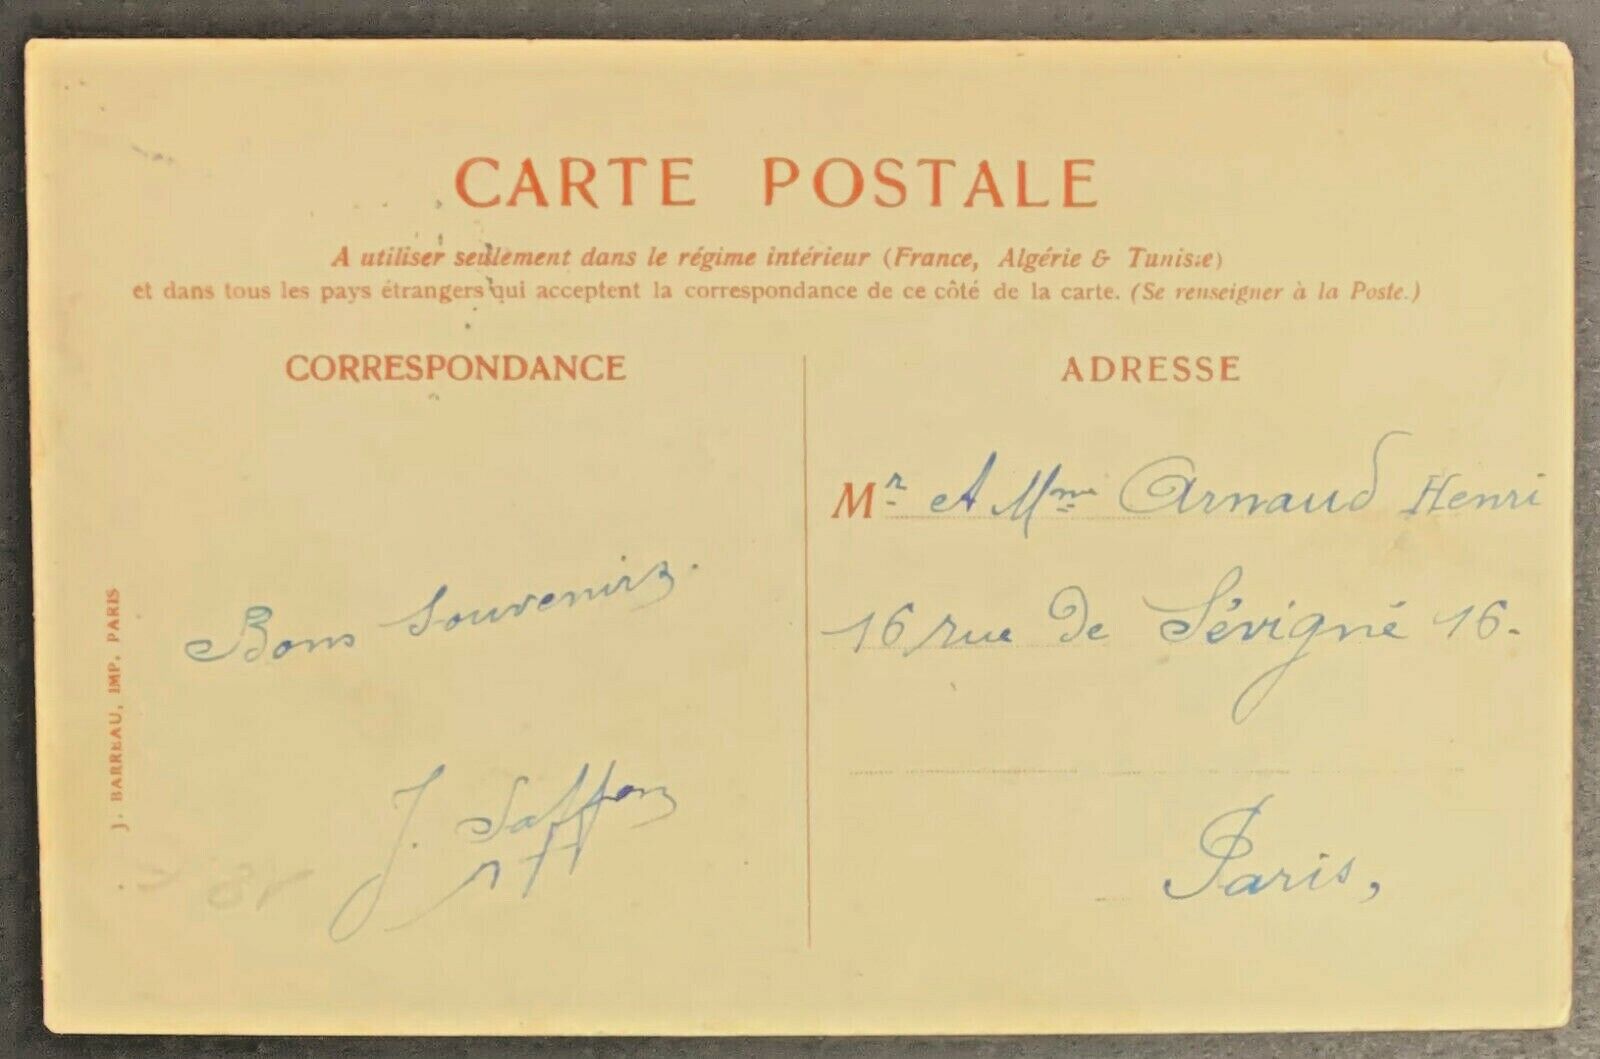 CARTE POSTALE
A utiliser seulement dans le régime intérieur (France, Algérie & Tunisie)
et dans tous les pays étrangers qui acceptent la correspondance de ce côté de la carte. (Se renseigner à la Poste.)
CORRESPONDANCE
Bons Souvenirs.
J.
J. BARREAU, IMP. PARIS
ADRESSE
Mr et Mme Arnaud Henri
16 rue de Sévigné 16.
Paris,